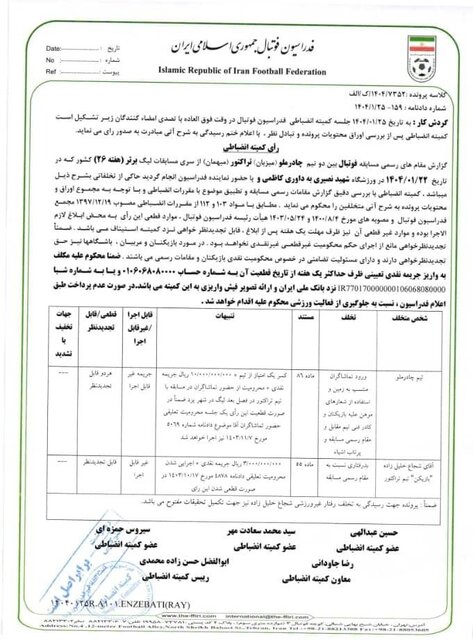 فدراسیون فوتبال جمهوری اسلامی ایران
Islamic Republic of Iran Football Federation
Date: تاریخ
No شماره
Ref پیوست
کلاسه پرونده : ۱۴۰۴/۷۳۵۲/ک/الف
شماره دادنامه : ۱۵۹-۱۴۰۴/۱/۲۵
گردش کار : به تاریخ ۱۴۰۴/۰۱/۲۵ جلسه کمیته انضباطی فدراسیون فوتبال در وقت فوق العاده با تصدی امضاء کنندگان زیر تشکیل است
کمیته انضباطی پس از بررسی اوراق محتویات پرونده و تبادل نظر ، با اعلام ختم رسیدگی به شرح آتی مبادرت به صدور رای می نماید.
رأی کمیته انضباطی
گزارش مقام های رسمی مسابقه فوتبال بین دو تیم چادرملو (میزبان) تراکتور (میهمان) از سری مسابقات لیگ برتر (هفته ۲۶) کشور که در
تاریخ ۱۴۰۴/۰۱/۲۲ در ورزشگاه شهید نصیری به داوری کاظمی و با حضور نماینده فدراسیون انجام گردید حاکی از تخلفاتی بشرح ذیل
میباشد. کمیته انضباطی با بررسی دقیق گزارش مقامات رسمی مسابقه و تطبیق موضوع با مقررات انضباطی و با توجه به مجموع اوراق و
محتویات پرونده به شرح آتی متخلفین را محکوم می نماید . مطابق با مواد ۱۰۳ و ۱۱۲ از مقررات انضباطی مصوب ۱۳۹۷/۱۲/۱۹ مجمع
فدراسیون فوتبال و مصوبه های مورخ ۱۴۰۰/۸/۴ و ۱۴۰۳/۵/۲۴ هیأت رئیسه فدراسیون فوتبال ، موارد قطعی این رأی به محض ابلاغ لازم
الاجرا بوده و موارد غیر قطعی آن نیز ظرف مهلت یک هفته پس از ابلاغ ، قابل تجدیدنظر خواهی نزد کمیته استیناف می باشد. ضمناً
تجدیدنظرخواهی مانع از اجرای حکم محکومیت غیرقطعی غیرنقدی نخواهد بود . در مورد بازیکنان و مربیان ، باشگاهها نیز حق
تجدیدنظرخواهی دارند و دارای مسئولیت تضامنی در خصوص محکومیت نقدی بازیکنان و مقامات رسمی می باشند. ضمنا محکوم علیه مکلف
به واریز جریمه نقدی تعیینی ظرف حداکثر یک هفته از تاریخ قطعیت آن به شماره حساب ۰۱۰۶۰۶۸۰۸۰۰۰۰ و یا به شماره شبا
IR770170000000106068080000 نزد بانک ملی ایران و ارائه تصویر فیش واریزی به این کمیته می باشد.در صورت عدم پرداخت طبق
اعلام فدراسیون ، نسبت به جلوگیری از فعالیت ورزشی محکوم علیه اقدام خواهد شد .
شخص متخلف تخلف مستند تنبیهات قابل اجرا /غیرقابل اجرا قطعی/قابل تجدیدنظر جهات تخفیف یا تشدید
تیم چادرملو
ورود تماشاگران منتسب به زمین و استفاده از شعارهای موهن علیه بازیکنان و کادر فنی تیم مقابل و مقام رسمی مسابقه و پرتاب اشیاء
ماده ۸۶
کسر یک امتیاز از تیم + ۱۰/۰۰۰/۰۰۰/۰۰۰ ریال جریمه نقدی + محرومیت از حضور تماشاگران در مسابقه با تیم تراکتور در فصل بعد لیگ در شهر یزد ضمناً در صورت قطعیت این رأی یک جلسه محرومیت تعلیقی حضور تماشاگران آقا موضوع دادنامه شماره ۵۰۶۹ مورخ ۱۴۰۳/۱۱/۷ نیز اجرا خواهد شد
جریمه غیر قابل اجرا
هر دو قابل تجدیدنظر
----
آقای شجاع خلیل زاده "بازیکن" تیم تراکتور
بدرفتاری نسبت به مقام رسمی مسابقه
ماده ۵۵
۳/۰۰۰/۰۰۰/۰۰۰ ریال جریمه نقدی + اجرایی شدن محرومیت تعلیقی دادنامه ۵۸۷۸ مورخ ۱۴۰۳/۱۰/۱۷ در صورت قطعی شدن این رأی
غیر قابل اجرا
قابل تجدیدنظر
----
ضمناً : پرونده جهت رسیدگی به تخلف رفتار غیرورزشی شجاع خلیل زاده نیز جهت تکمیل تحقیقات مفتوح می باشد.
حسین عبدالهی سید محمد سعادت مهر سیروس حمزه ای
عضو کمیته انضباطی عضو کمیته انضباطی عضو کمیته انضباطی
رضا جاودانی ابوالفضل حسن زاده محمدی
معاون کمیته انضباطی رئیس کمیته انضباطی
برابر اصل است
۱۴۰۴۰۱۲۵R.A۱.۰۱.ENZEBATI(RAY)
www.the-ffiri.com international@the-ffiri.com